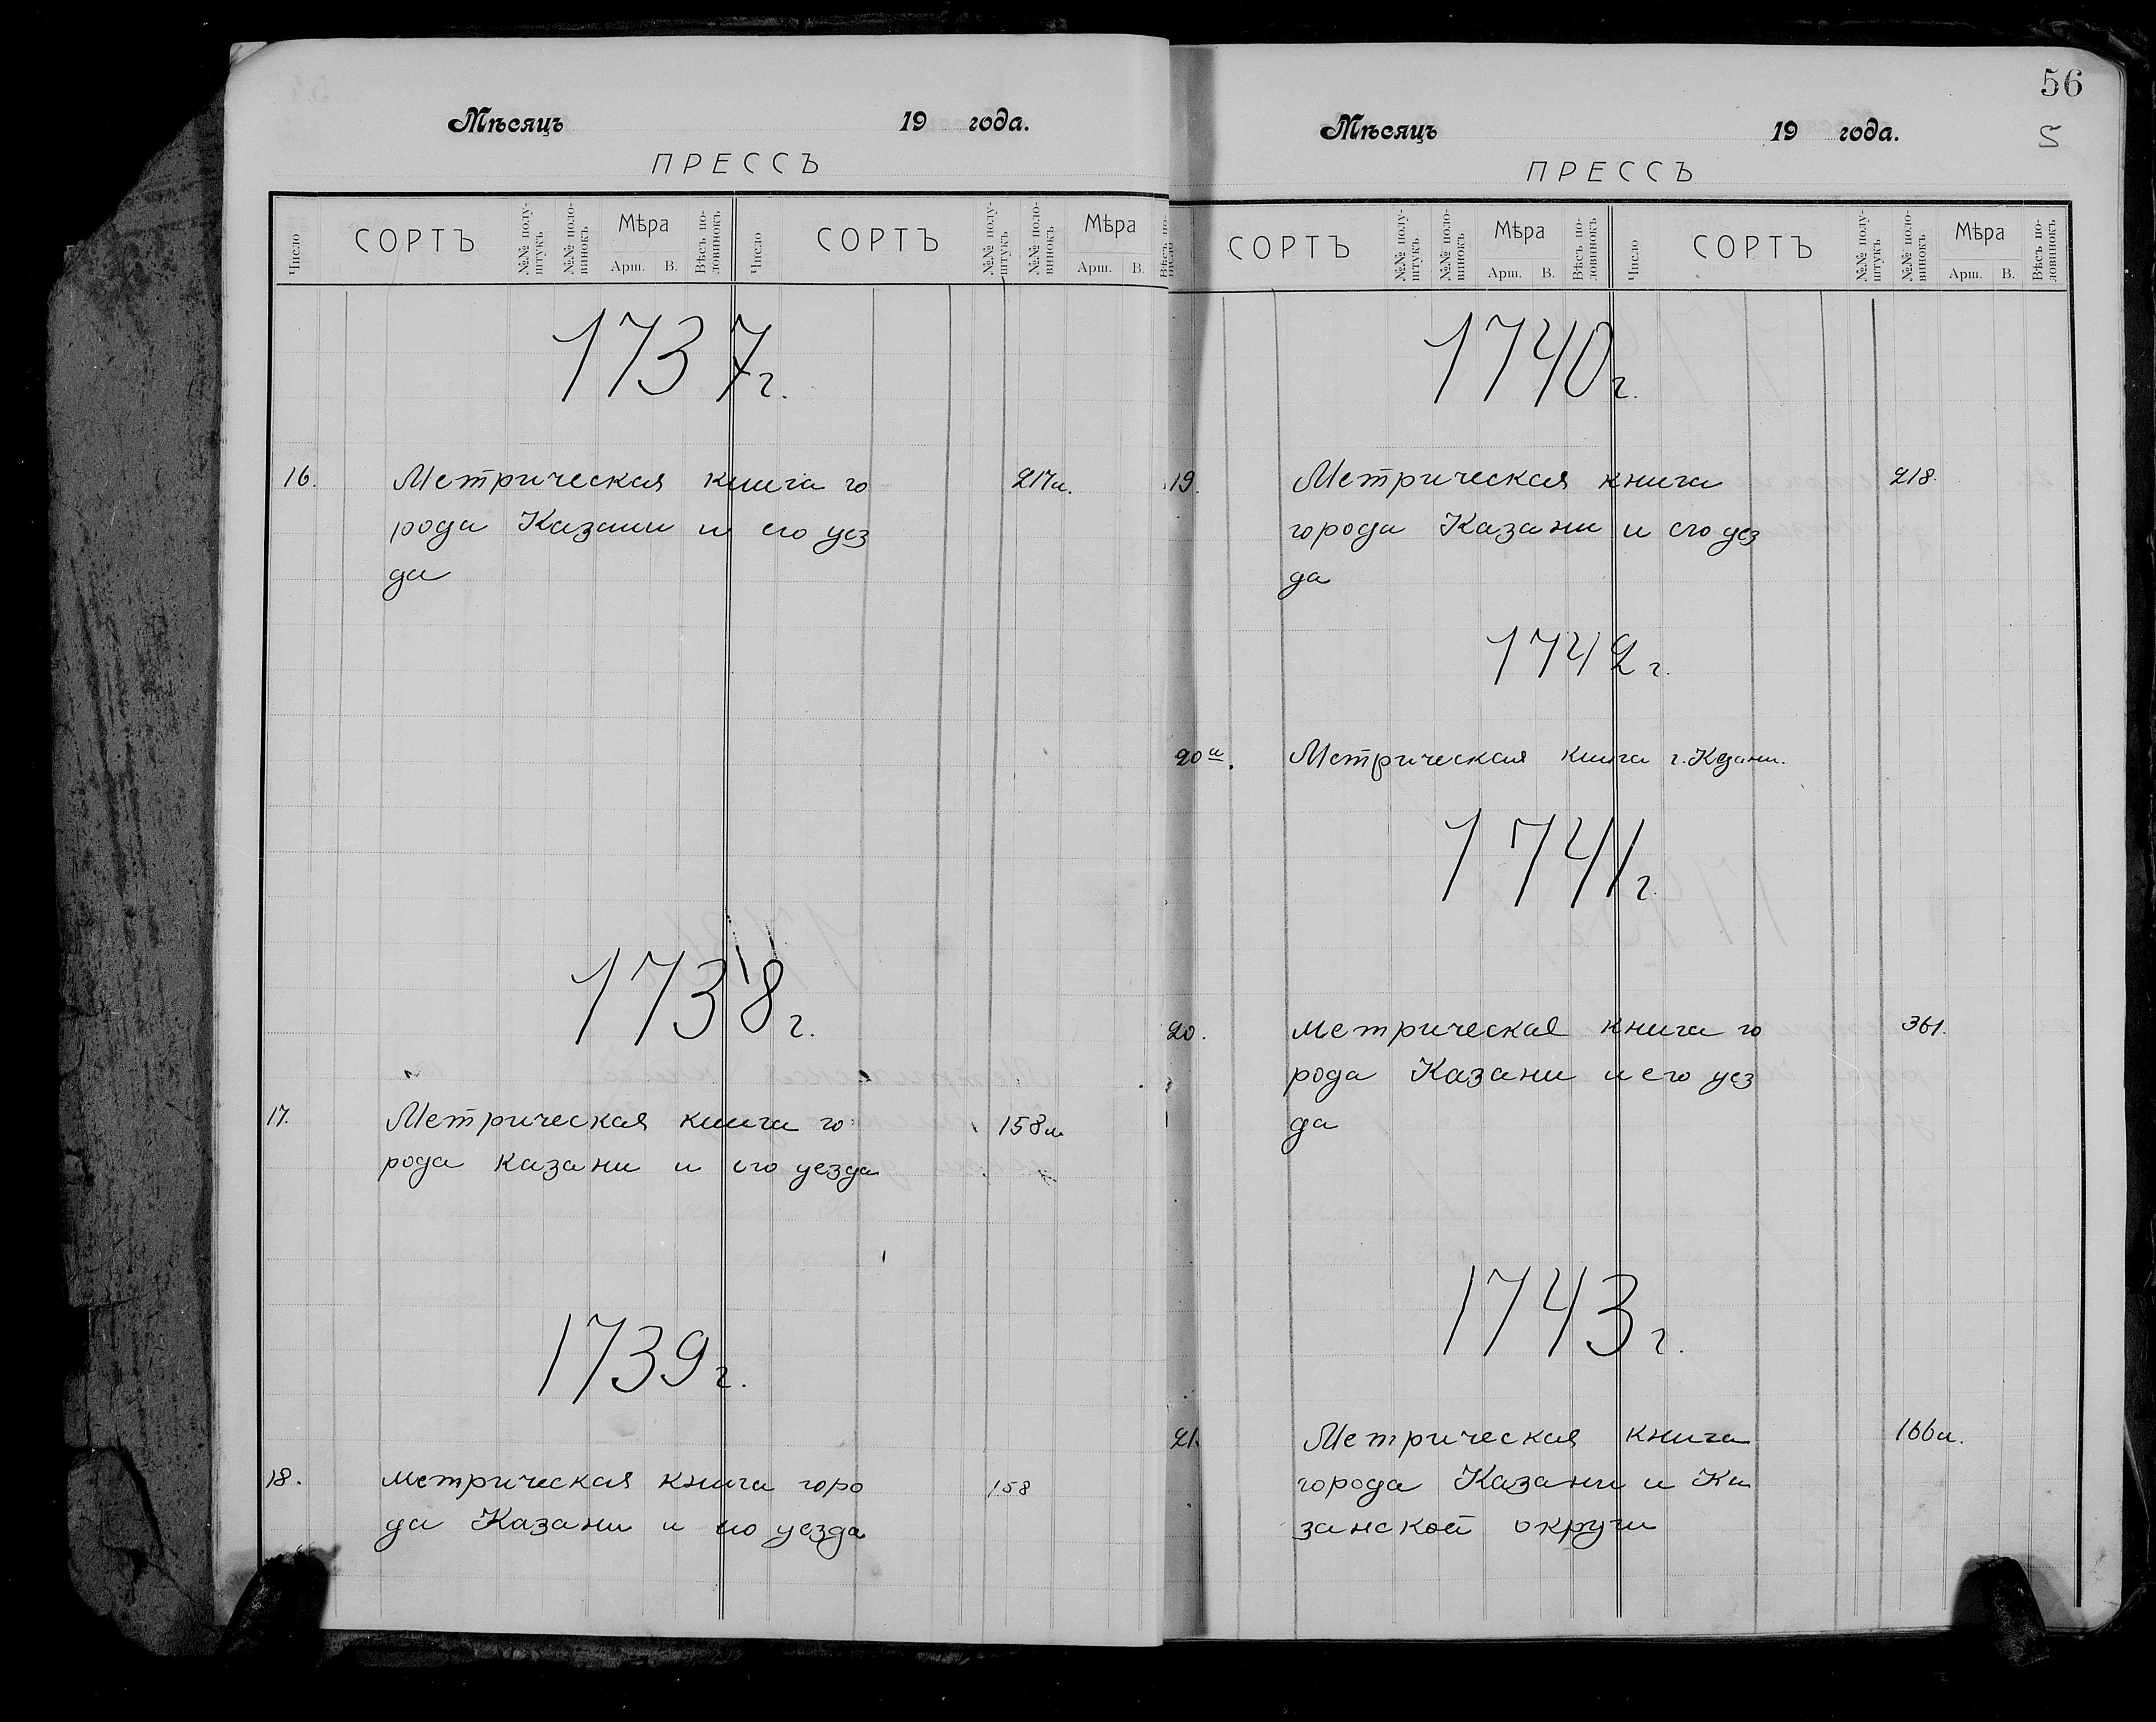 Мѣсяцъ 19 года.
ПРЕССЪ
Число СОРТЪ №№ полуштукъ №№ половинокъ Мѣра Арш. В. Вѣсъ половинокъ Число СОРТЪ №№ полуштукъ №№ половинокъ Мѣра Арш. В.
1737г.
16. Метрическая книга го 217и.
рода Казани и его уез
да
1738г.
17. Метрическая книга го 158и
рода Казани и его уезда
1739г.
18. метрическая книга горо 158
да Казани и его уезда
56
5
Мѣсяцъ 19 года.
ПРЕССЪ
СОРТЪ №№ полуштукъ №№ половинокъ Мѣра Арш. В. Вѣсъ половинокъ Число СОРТЪ №№ полуштукъ №№ половинокъ Мѣра Арш. В. Вѣсъ половинокъ
1740г.
19. Метрическая книга 218.
города Казани и его уез
да
1742г.
20а. Метрическая книга г.Казани.
1741г.
20. метрическая книга го 361.
рода Казани и его уез
да
1743г.
21. Метрическая книга 166и.
города Казани и Ка
занской округи